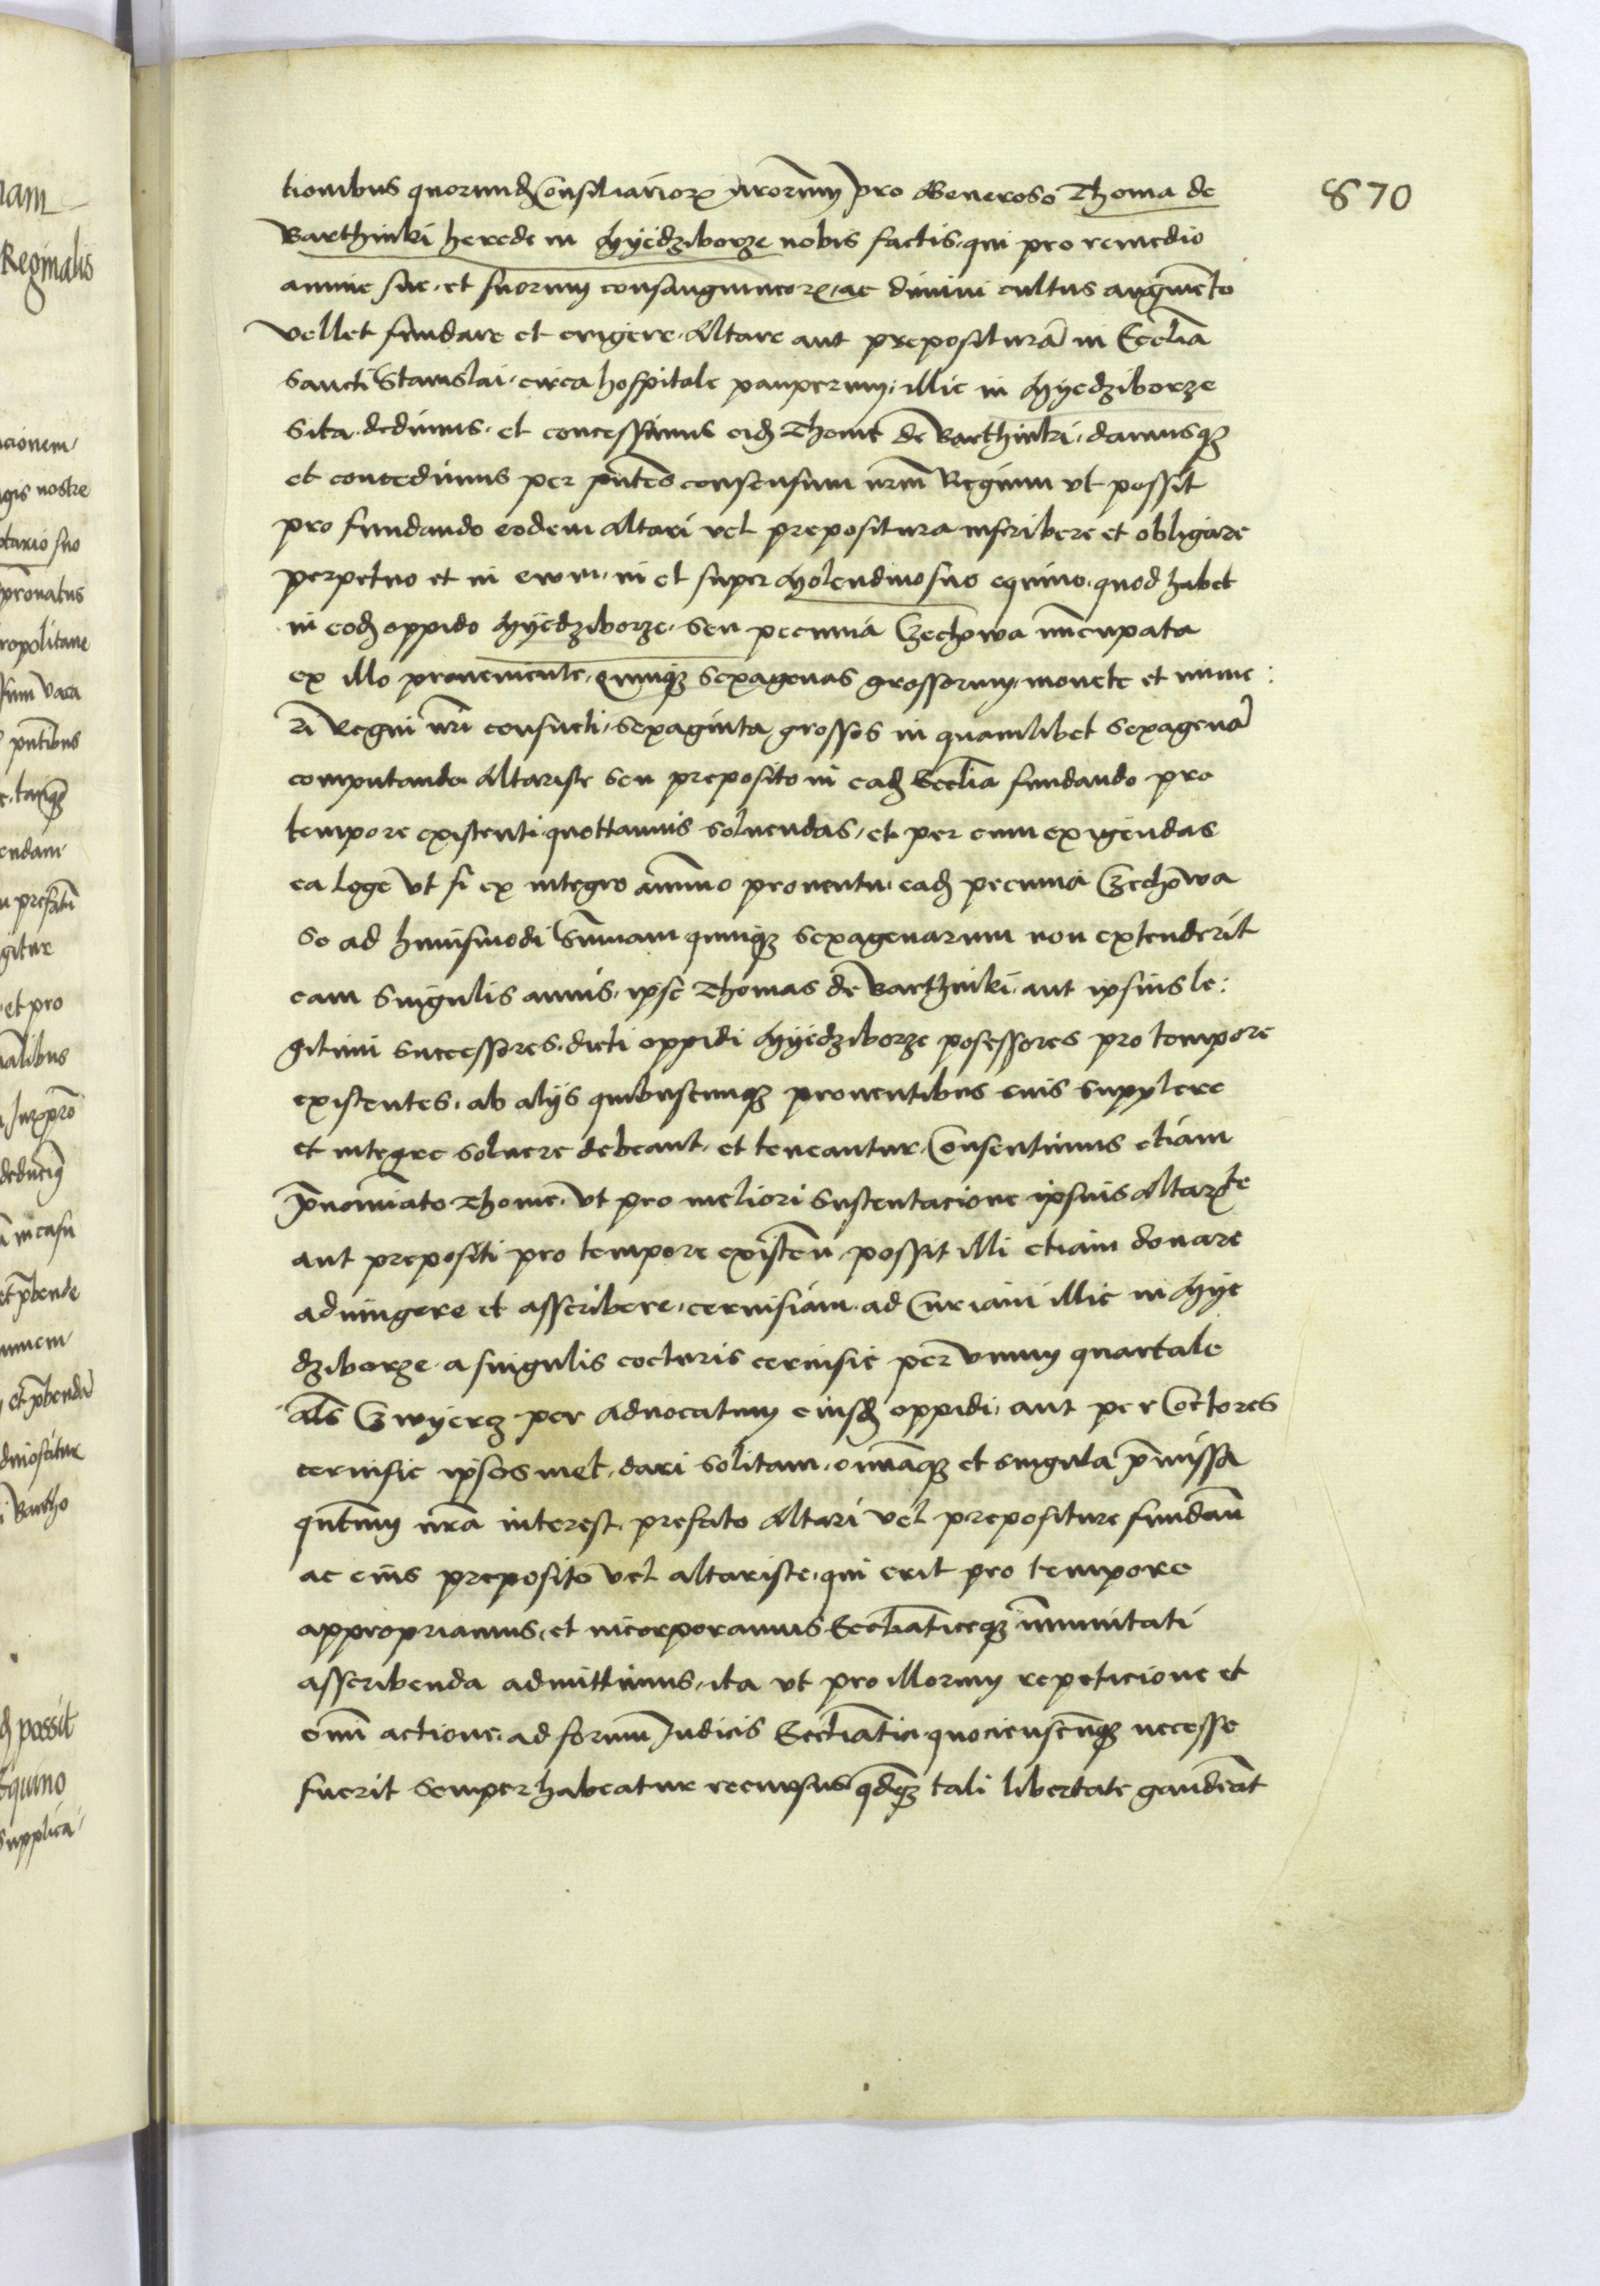 870
tionibus quorumd Consiliariorꝝ nrorum pro Generoso Thoma de
Barthinki herede in Myedziborze nobis factis, qui pro remedio
anime sue, et suorum consanguineorꝝ, ac divini cultus augmẽto
vellet fundare et erigere, Altare aut prepositurã in Ecclia
Sancti Stanislai, circa hospitale pauperum, illic in Myedziborze
sita, dedimus, et concessimus eid Thome de Barthinki, damusqȝ
et concedimus per pñtes consensum nrm̃ Regium ut possit
pro fundando eodem altari vel prepositura inscribere et obligare
perpetuo et in ewm, in et super Molendino suo equino, quod habet
in eod oppido Myedziborze, seu pecunia Czechowa nũcupata
ex illo proveniente, quinqȝ sexagenas grossorum, monete et nume:
ri Regni nri consueti, sexaginta grossos in quamlibet sexagenã
computando Altariste seu preposito in ead Ecclia fundando pro
tempore existenti quottannis solvendas, et per eum exigendas
ea lege ut si ex integro annuo proventu, ead pecunia Czechowa
se ad huiusmodi Sum̃am quinqȝ sexagenarum non extenderit
eam singulis annis, ipse Thomas de Barthinki, aut ipsius le:
gitimi successores, dicti oppidi Myedziborze posessores pro tempore
existentes, ab alijs quibuscunqȝ proventibus suis supplere
et integre solvere debeant, et teneantur, Consentimus etiam
p̃nomĩato Thome, ut pro meliori sustentacione ipsius Altar̃te
aut prepositi pro tempore existen̄, possit illi etiam donare
adiungere et asscribere, cervisiam, ad Curiam illic in Mye
dziborze, a singulis cocturis cervisie per unum quartale
als Czwyercz per Advocatum eiusd oppidi, aut per Coctores
cervisie ipsosmet, dari solitam, omnĩaqȝ et singula p̃missa
qñtum nr̃a interest, prefato Altari vel prepositure fundan̄
ac eius preposito vel altariste, qui erit pro tempore
appropriamus, et incorporamus Eccl̃iaticeqȝ im̃unitati
asscribenda admittimus, ita ut pro illorum repeticione et
om̃i actione, ad forum Iudicis Eccl̃iatici, quociensc̃uqȝ necesse
fuerit semper habeatur recursus, qd̃qȝ tali libertate gaudeãt